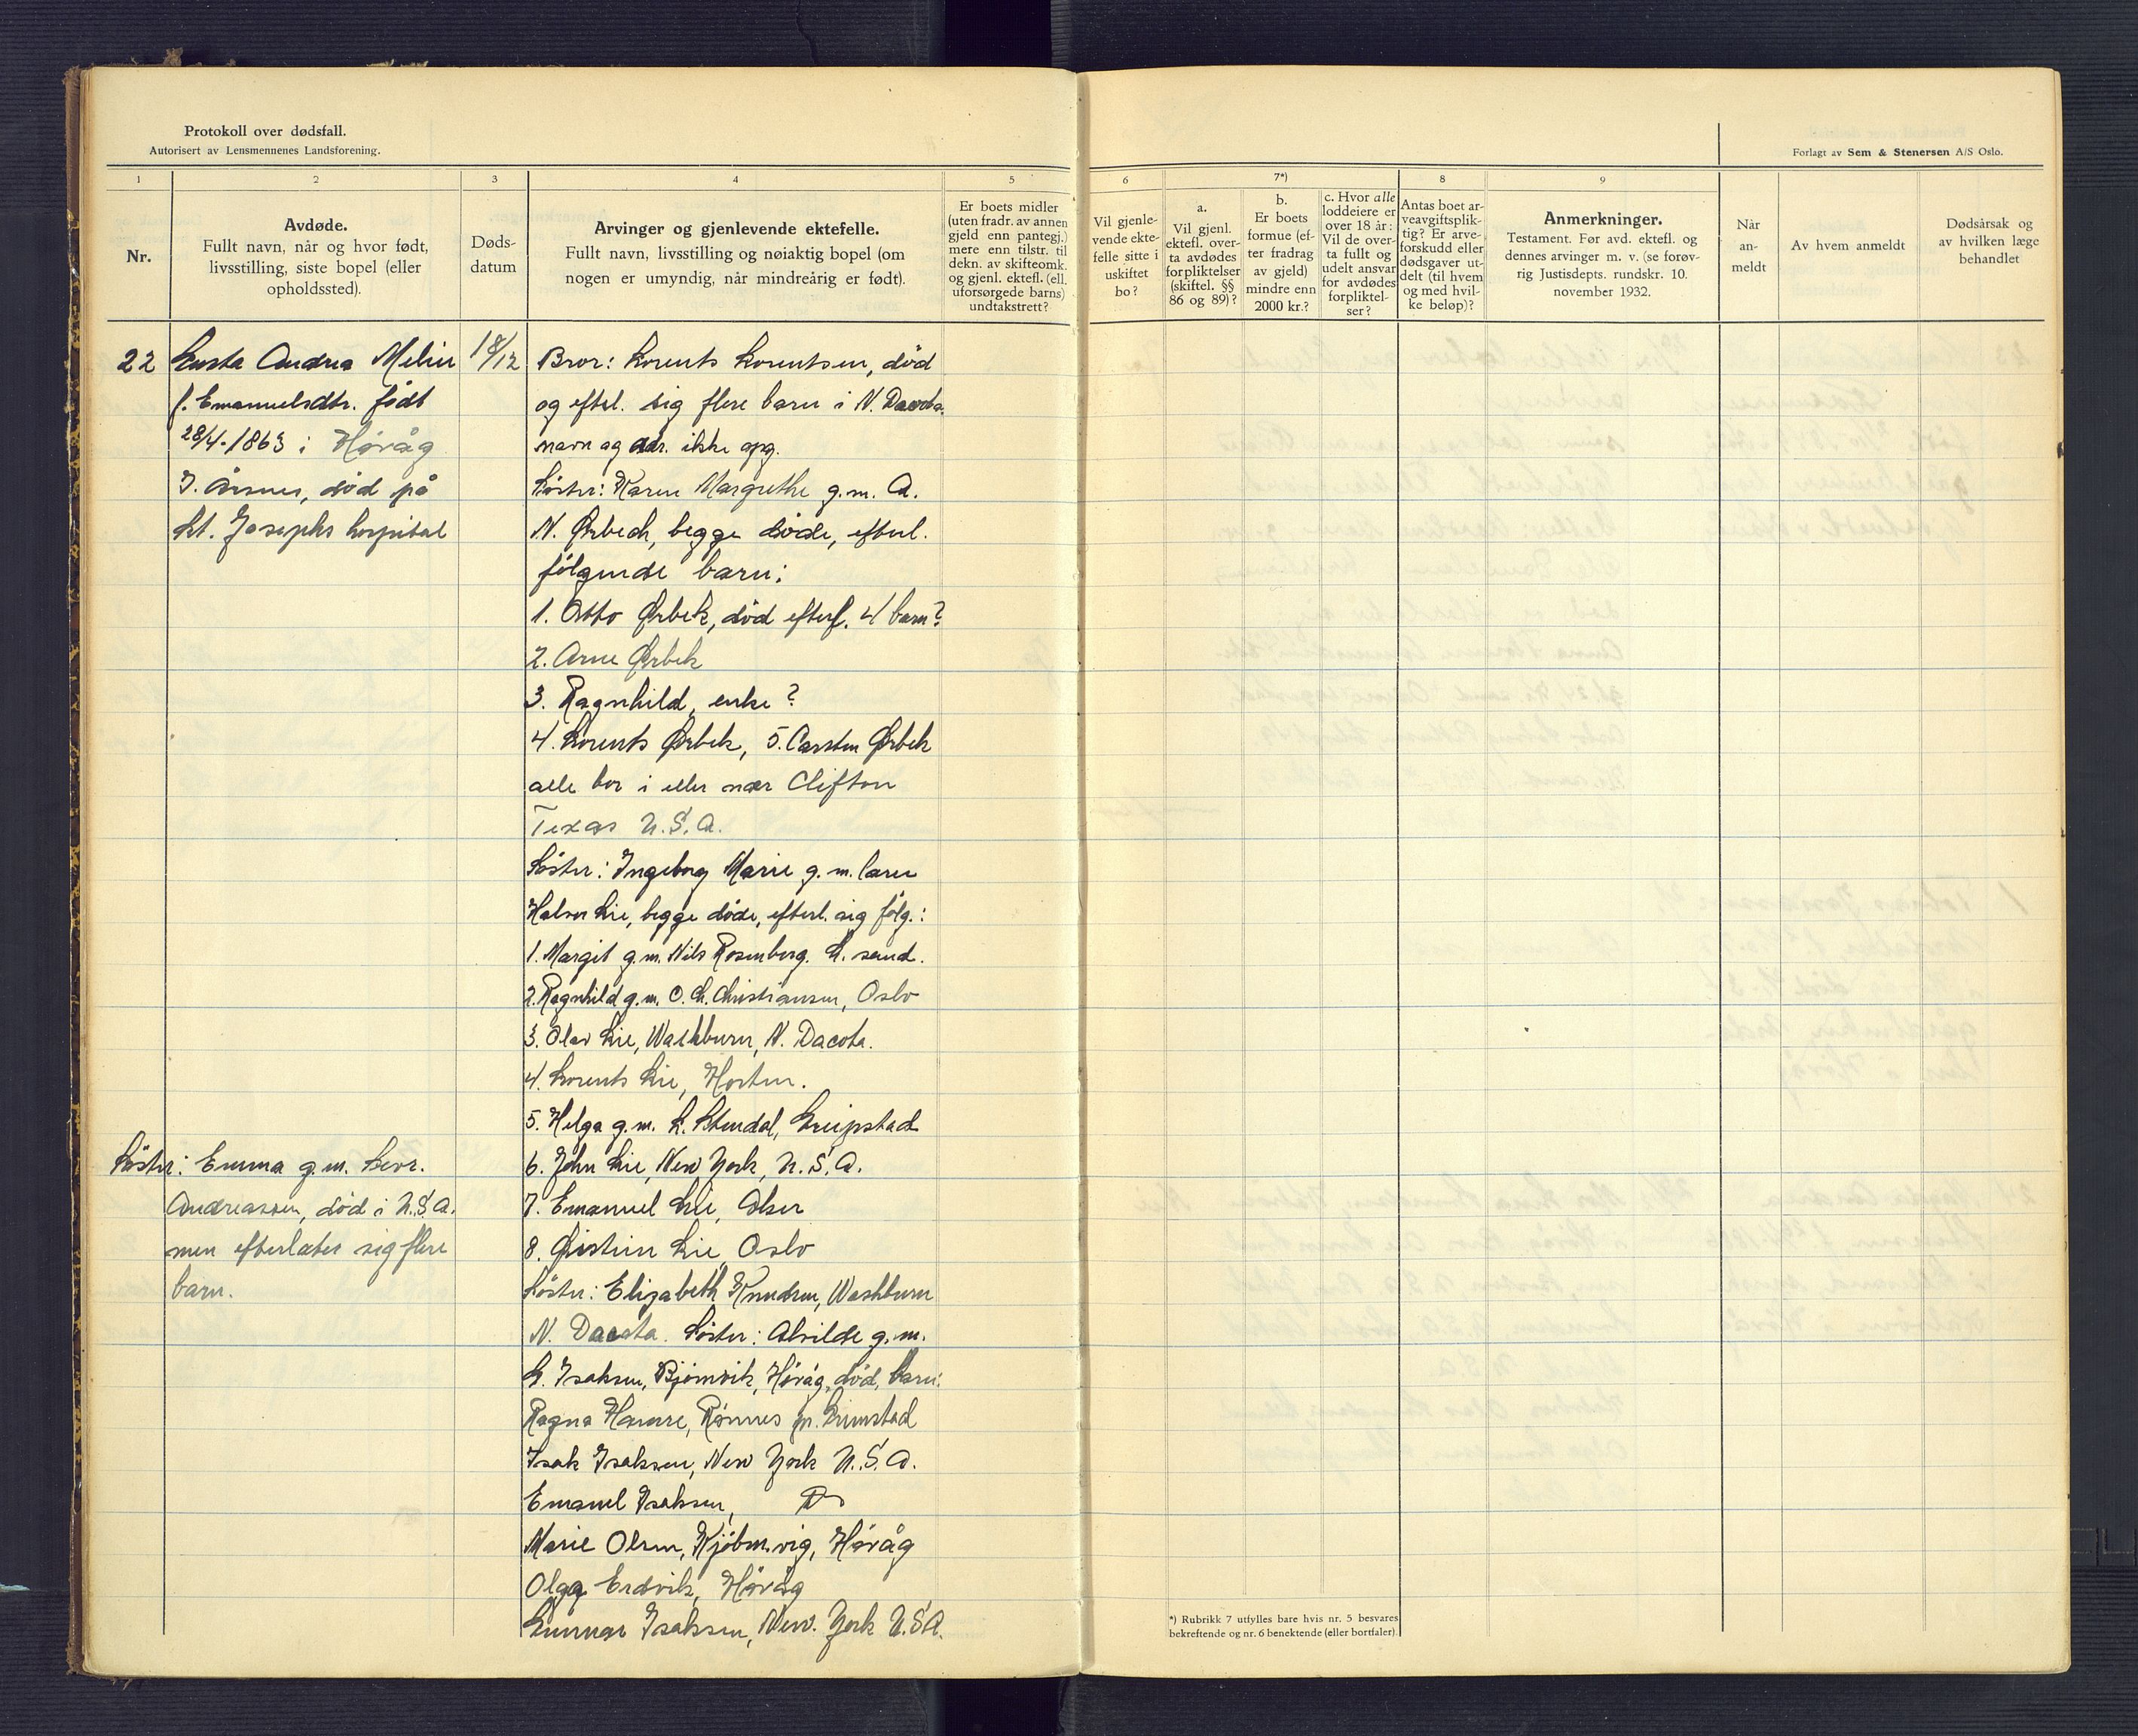 Protokoll over dødsfall.
Autorisert av Lensmennenes Landsforening.
Forlagt av Sem & Stenersen A/S Oslo.
1
2
3
4
5
6
7*)
8
9
Nr.
Avdøde.
Fullt navn, når og hvor født,
livsstilling, siste bopel (eller
opholdssted).
Døds-
datum
Arvinger og gjenlevende ektefelle.
Fullt navn, livsstilling og nøiaktig bopel (om
nogen er umyndig, når mindreårig er født).
Er boets midler
(uten fradr. av annen
gjeld enn pantegj.)
mere enn tilstr. til
dekn. av skifteomk.
og gjenl. ektefl. (ell.
uforsørgede barns)
undtakstrett?
Vil gjenle-
vende ekte-
felle sitte i
uskiftet
bo?
a.
Vil gjenl.
ektefl. over-
ta avdødes
forpliktelser
(skiftel. §§
86 og 89)?
b.
Er boets
formue (ef-
ter fradrag
av gjeld)
mindre enn
2000 kr.?
c. Hvor alle
loddeiere er
over 18 år:
Vil de over-
ta fullt og
udelt ansvar
for avdødes
forpliktel-
ser?
Antas boet ar-
veavgiftsplik-
tig? Er arve-
forskudd eller
dødsgaver ut-
delt (til hvem
og med hvil-
ke beløp)?
Anmerkninger.
Testament. Før avd. ektefl. og
dennes arvinger m. v. (se forøv-
rig Justisdepts. rundskr. 10.
november 1932.
Når
an-
meldt
Av hvem anmeldt
Dødsårsak og
av hvilken læge
behandlet
22
Andrea
f. Emanuelsdtr. født
28/4-1863 i Høvåg
død på
St. Josephs hospital
18/12
Bror: Lorents Lorentsen, død
og eftel. sig flere barn i N. Dacota
navn og adr. ikke opg.
Søster: Karen Margrethe g.m. A.
N. Ørbech, begge døde, efterl.
følgende barn:
1. Otto Ørbek, død efterl. 4 barn?
2. Arne Ørbek
3. Ragnhild, enke?
4. Lorents Ørbek, 5. Carsten Ørbek
alle bor i eller nær Clifton
Texas U.S.A.
Søster: Ingeborg Marie g.m.
Halvor Lie, begge døde, efterl. sig følg.:
1. Margit g.m. Nils Rosenberg. L. sand.
2. Ragnhild g.m. O. Ch. Christiansen, Oslo
3. Olav Lie, Washburn, N. Dacota.
4. Lorents Lie, Horten.
5. Helga g.m. L. Stendal, Greipstad
6. John Lie, New York, U.S.A.
7. Emanuel Lie,
8. Lie, Oslo
Søster: Elizabeth Knudsen, Washburn
N. Dacota. Søster: Alvilde g.m.
L. Isaksen, Bjørnvik, Høvåg, død, barn:
Ragna Hamre, Rønnes pr. Grimstad
Isak Isaksen, New York U.S.A.
Emanuel Isaksen, Do
Marie Olsen, Kjøbmvig, Høvåg
Olga Erdvik, Høvåg
Gunnar Isaksen, New. York U.S.A.
Søster: Emma g.m.
Andreassen, død i U.S.A.
men efterlater sig flere
barn.
*) Rubrikk 7 utfylles bare hvis nr. 5 besvares
bekreftende og nr. 6 benektende (eller bortfaler).